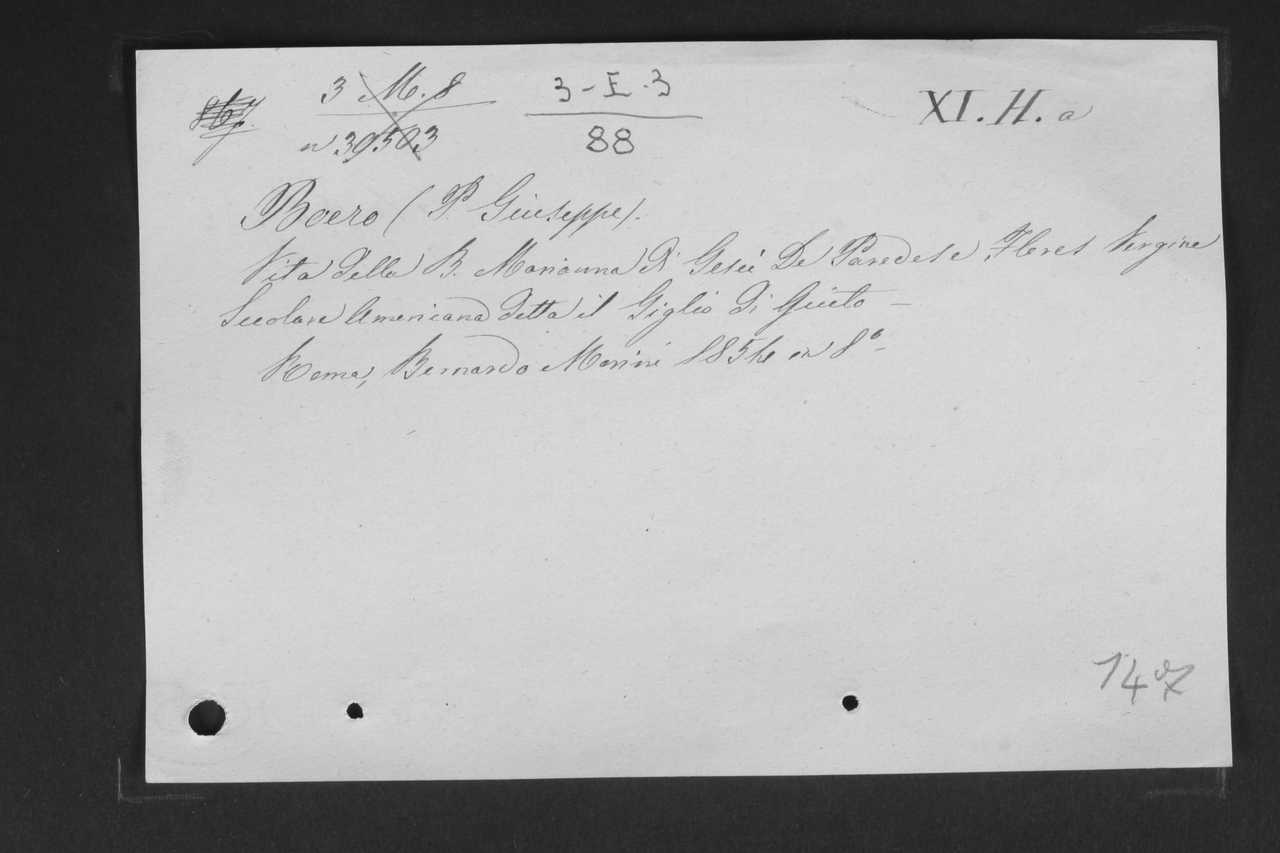 3 M. 8
n 39503
3-E.3
88
XI. H. a
Boero (P. Giuseppe).
Vita della B. Marianna di Gesù De Paredes e Flores Vergine
Secolare Americana detta il Giglio di Quito –
Roma, Bernardo Morini 1854 in 8° –